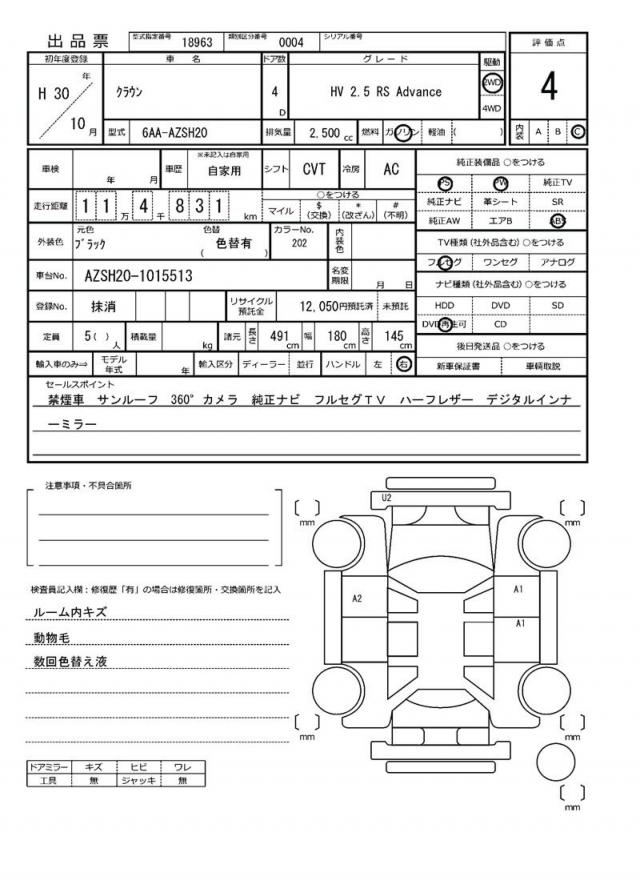 出品票 型式指定番号 18963 類別区分番号 0004 シリアル番号
初年度登録 車名 ドア数 グレード 駆動 評価点
H 30 年 10 月 クラウン 4 D HV 2.5 RS Advance 2WD 4WD 4
型式 6AA-AZSH20 排気量 2,500 cc 燃料 ガソリン 軽油 ( ) 内装 A B C
車検 年 月 車歴 ※未記入は自家用 自家用 シフト CVT 冷房 AC 純正装備品 ○をつける
PS PW 純正TV
走行距離 1 1 万 4 千 8 3 1 km ○をつける
マイル $ (交換) * (改ざん) # (不明)
純正ナビ 革シート SR
純正AW エアB ABS
外装色 元色 ブラック 色替 ( 色替有 ) カラーNo. 202 内装色
TV種類 (社外品含む) ○をつける
フルセグ ワンセグ アナログ
車台No. AZSH20-1015513 名変期限 月 日
ナビ種類 (社外品含む) ○をつける
登録No. 抹消 リサイクル預託金 12,050円預託済 未預託
HDD DVD SD
DVD再生可 CD
定員 5( ) 人 積載量 kg 諸元 長さ 491 cm 幅 180 cm 高さ 145 cm
後日発送品 ○をつける
輸入車のみ⇒ モデル年式 年 輸入区分 ディーラー 並行 ハンドル 左 右
新車保証書 車輌取説
セールスポイント
禁煙車 サンルーフ 360°カメラ 純正ナビ フルセグTV ハーフレザー デジタルインナ
ーミラー
注意事項・不具合箇所
U2
mm
mm
検査員記入欄:修復歴「有」の場合は修復箇所・交換箇所を記入
A2 A1
ルーム内キズ
A1
動物毛
数回色替え液
mm
mm
ドアミラー キズ ヒビ ワレ
工具 無 ジャッキ 無
mm